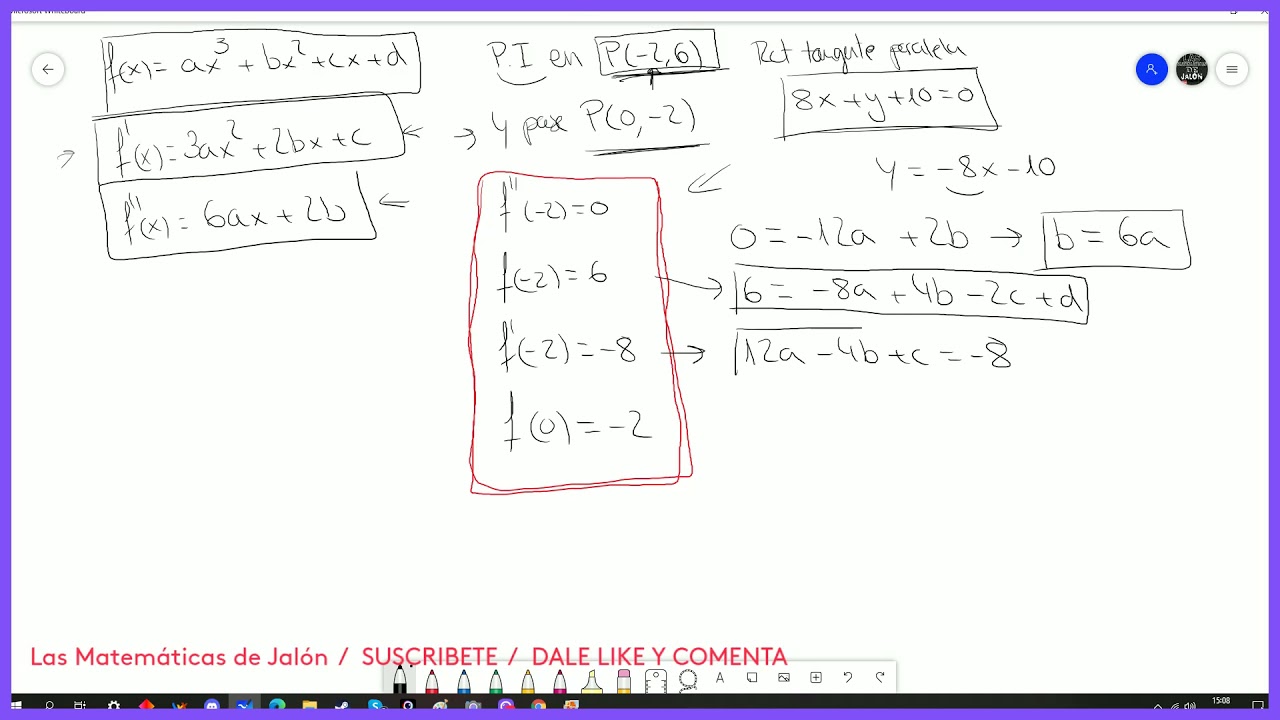 Microsoft Whiteboard
f(x) = ax³ + bx² + cx + d
P.I en P(-2,6)
Rct tangente paralela
8x + y + 10 = 0
f'(x) = 3ax² + 2bx + c
Y pase P(0,-2)
y = -8x - 10
f''(x) = 6ax + 2b
f''(-2) = 0
0 = -12a + 2b → b = 6a
f(-2) = 6 → 6 = -8a + 4b - 2c + d
f'(-2) = -8 → 12a - 4b + c = -8
f(0) = -2
LAS MATEMÁTICAS DE JALÓN
Las Matemáticas de Jalón / SUSCRIBETE / DALE LIKE Y COMENTA
15:08